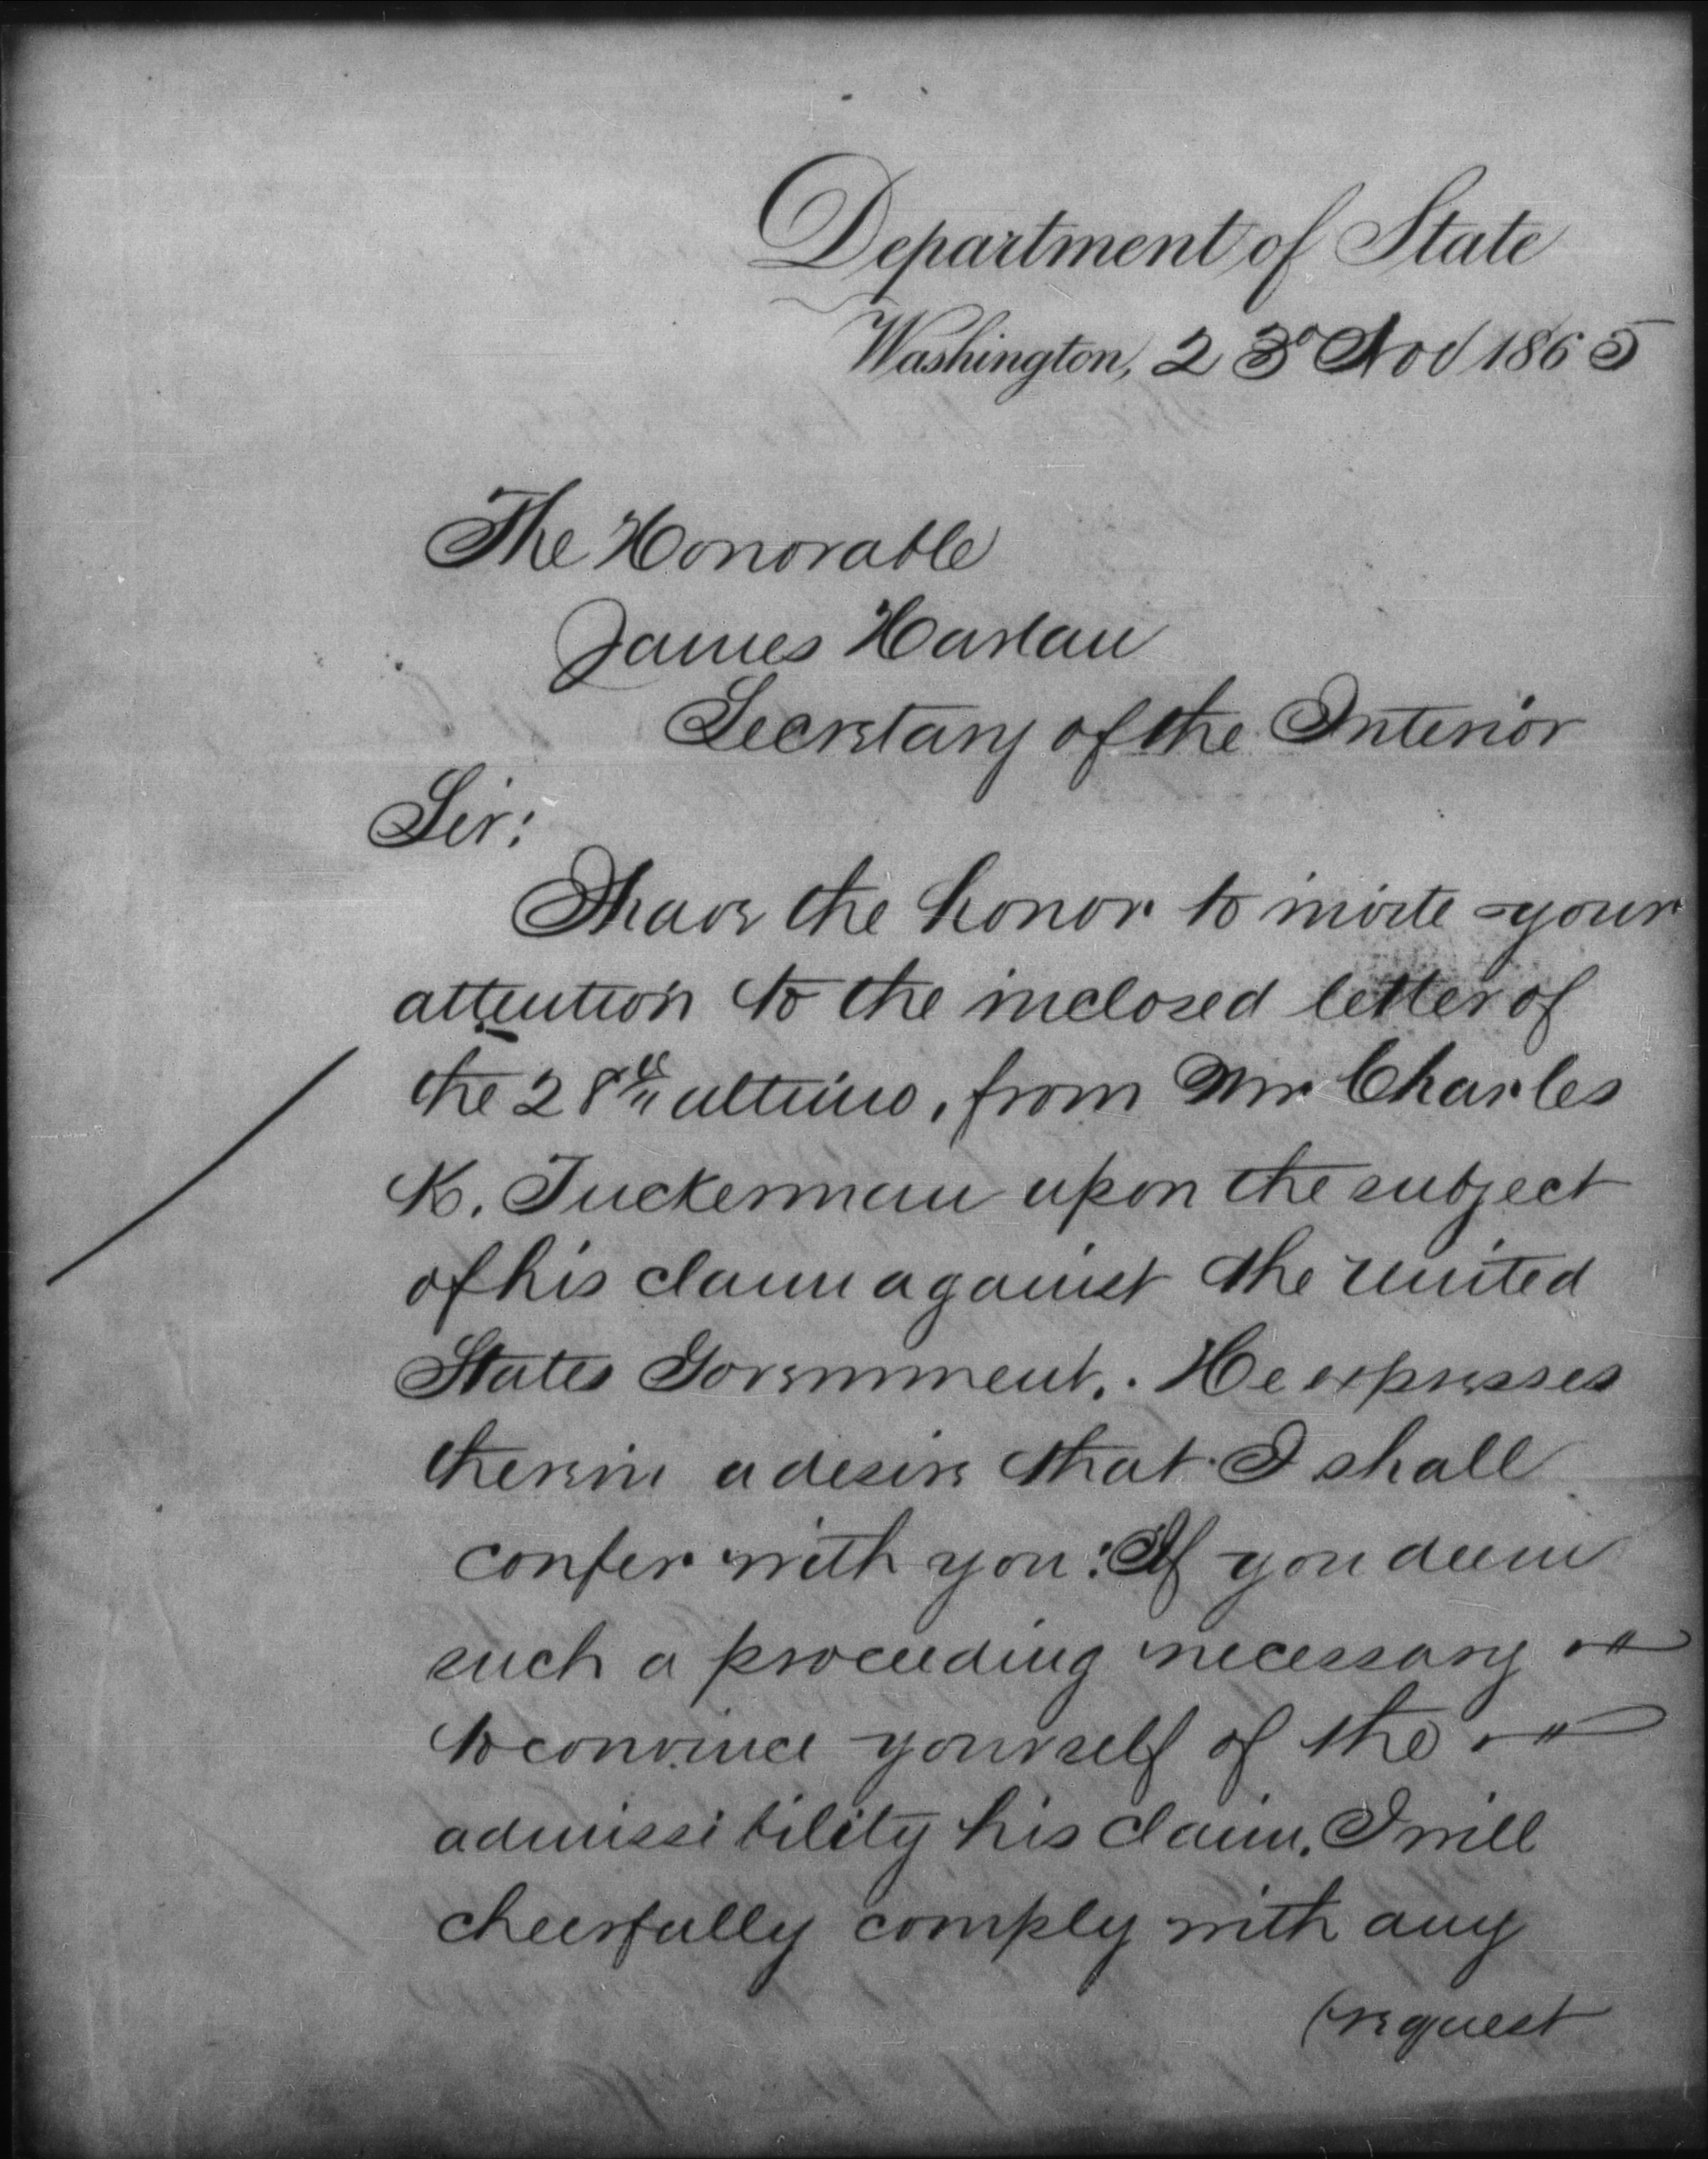 Department of State
Washington, 23d Nov 1865
The Honorable
James Harlan
Secretary of the Interior
Sir:
I have the honor to invite your
attention to the inclosed letter of
the 28th ultimo, from Mr Charles
K. Tuckerman upon the subject
of his claim against the United
States Government. He expresses
therein a desire that I shall
confer with you: If you deem
such a proceeding necessary
to convince yourself of the
admissibility his claim, I will
cheerfully comply with any
(request